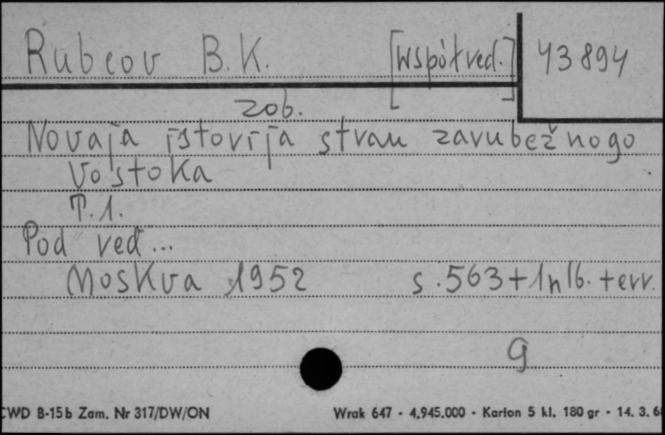 Rubcov B.K. [Współred.] 43894
zob.
Novaja istorija stran zarubežnogo
Vostoka
T.1.
Pod red...
Moskva 1952 s.563+1nlb.+err.
g
CWD B-15b Zam. Nr 317/DW/ON Wrak 647 - 4.945.000 - Karton 5 kl. 180 gr - 14. 3. 6